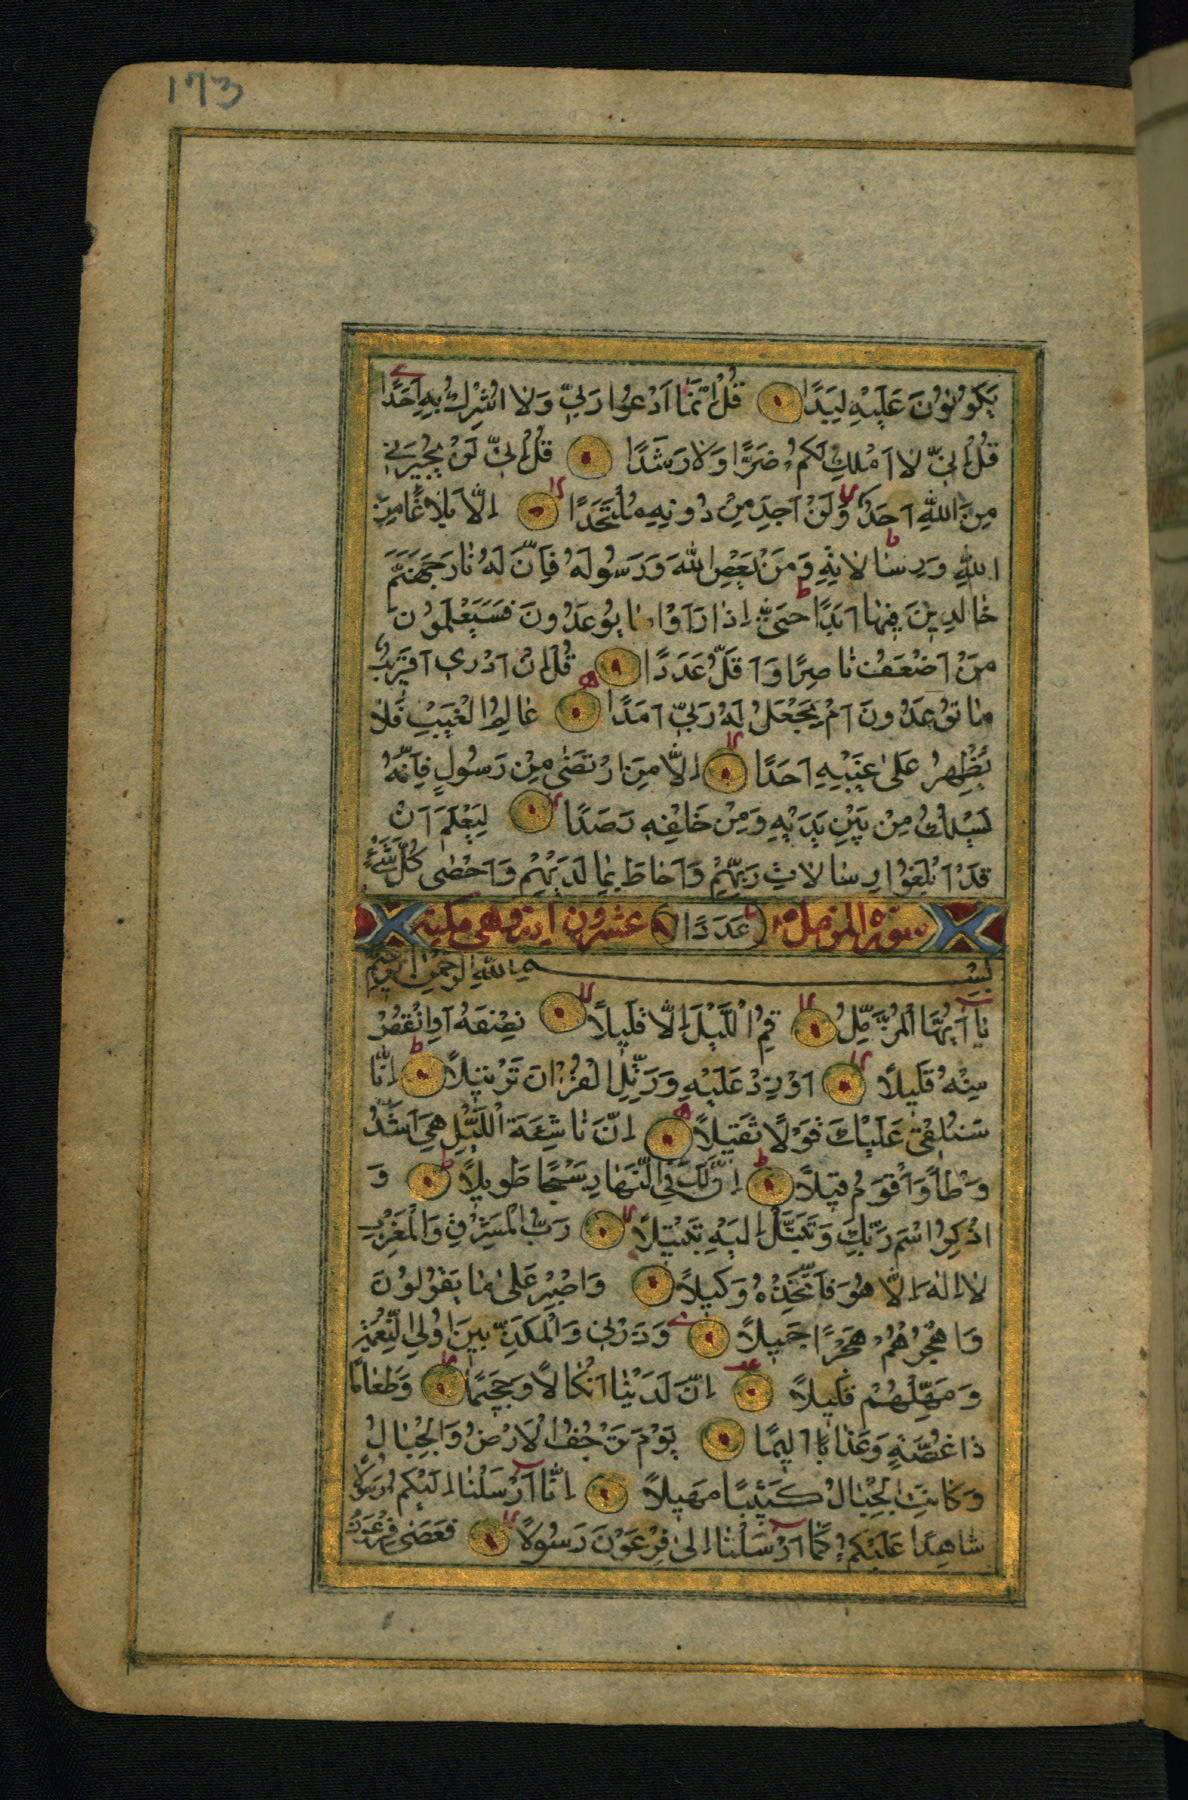 173
يَكُونُونَ عَلَيْهِ لِبَدًا قُلْ اِنَّمَا اَدْعُوا رَبِّي وَلَا اُشْرِكُ بِهِ اَحَدًا
قُلْ اِنِّي لَا اَمْلِكُ لَكُمْ ضَرًّا وَلَا رَشَدًا قُلْ اِنِّي لَنْ يُجِيرَنِي
مِنَ اللّٰهِ اَحَدٌ وَلَنْ اَجِدَ مِنْ دُونِهِ مُلْتَحَدًا اِلَّا بَلَاغًا مِنَ
اللّٰهِ وَرِسَالَاتِهِ وَمَنْ يَعْصِ اللّٰهَ وَرَسُولَهُ فَاِنَّ لَهُ نَارَ جَهَنَّمَ
خَالِدِينَ فِيهَا اَبَدًا حَتّٰى اِذَا رَاَوْا مَا يُوعَدُونَ فَسَيَعْلَمُونَ
مَنْ اَضْعَفُ نَاصِرًا وَاَقَلُّ عَدَدًا قُلْ اِنْ اَدْرِي اَقَرِيبٌ
مَا تُوعَدُونَ اَمْ يَجْعَلُ لَهُ رَبِّي اَمَدًا عَالِمُ الْغَيْبِ فَلَا
يُظْهِرُ عَلٰى غَيْبِهِ اَحَدًا اِلَّا مَنِ ارْتَضٰى مِنْ رَسُولٍ فَاِنَّهُ
يَسْلُكُ مِنْ بَيْنِ يَدَيْهِ وَمِنْ خَلْفِهِ رَصَدًا لِيَعْلَمَ اَنْ
قَدْ اَبْلَغُوا رِسَالَاتِ رَبِّهِمْ وَاَحَاطَ بِمَا لَدَيْهِمْ وَاَحْصٰى كُلَّ شَيْءٍ
سورة المزمل عَدَدًا عشرون اية وهي مكية
بسم الله الرحمن الرحيم
يَا اَيُّهَا الْمُزَّمِّلُ قُمِ اللَّيْلَ اِلَّا قَلِيلًا نِصْفَهُ اَوِ انْقُصْ
مِنْهُ قَلِيلًا اَوْ زِدْ عَلَيْهِ وَرَتِّلِ الْقُرْاٰنَ تَرْتِيلًا اِنَّا
سَنُلْقِي عَلَيْكَ قَوْلًا ثَقِيلًا اِنَّ نَاشِئَةَ اللَّيْلِ هِيَ اَشَدُّ
وَطْاً وَاَقْوَمُ قِيلًا اِنَّ لَكَ فِي النَّهَارِ سَبْحًا طَوِيلًا وَ
اذْكُرِ اسْمَ رَبِّكَ وَتَبَتَّلْ اِلَيْهِ تَبْتِيلًا رَبُّ الْمَشْرِقِ وَالْمَغْرِبِ
لَا اِلٰهَ اِلَّا هُوَ فَاتَّخِذْهُ وَكِيلًا وَاصْبِرْ عَلٰى مَا يَقُولُونَ
وَاهْجُرْهُمْ هَجْرًا جَمِيلًا وَذَرْنِي وَالْمُكَذِّبِينَ اُولِي النَّعْمَةِ
وَمَهِّلْهُمْ قَلِيلًا اِنَّ لَدَيْنَا اَنْكَالًا وَجَحِيمًا وَطَعَامًا
ذَا غُصَّةٍ وَعَذَابًا اَلِيمًا يَوْمَ تَرْجُفُ الْاَرْضُ وَالْجِبَالُ
وَكَانَتِ الْجِبَالُ كَثِيبًا مَهِيلًا اِنَّا اَرْسَلْنَا اِلَيْكُمْ رَسُولًا
شَاهِدًا عَلَيْكُمْ كَمَا اَرْسَلْنَا اِلٰى فِرْعَوْنَ رَسُولًا فَعَصٰى فِرْعَوْنُ